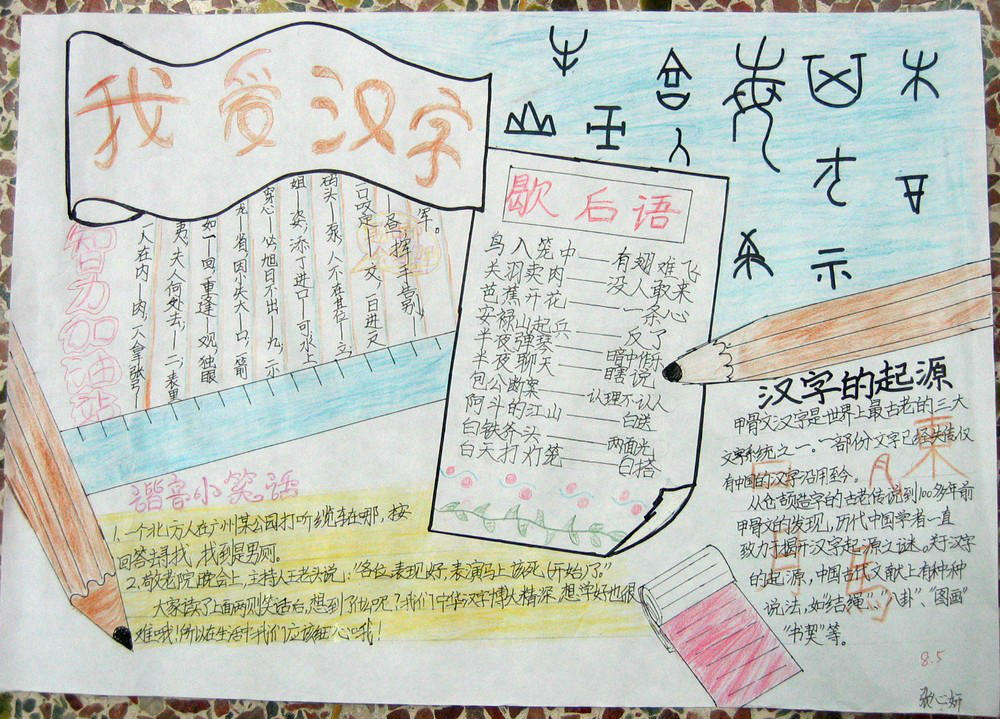 我爱汉字
智力加油站
军。
一昼，挥手告别—
一口咬定—交，一日进又
码头—泵，人不在其位—立，
姐—姿，添丁进口—可，水上
穿心—必，旭日不出—九，二小
龙，省，因小失大—口，箭
如一回，重逢—观，独眼
夷，夫人何处去，—二，表里
一人在内—肉，一人拿张弓—
歇后语
鸟入笼中——有翅难飞
关羽卖肉——没人敢来
芭蕉开花——一条心
安禄山起兵——反了
半夜弹琴——暗中作乐
半夜聊天——瞎说
包公断案——认理不认人
阿斗的江山——白送
白铁斧头——两面光
白天打灯笼——白搭
汉字的起源
甲骨文汉字是世界上最古老的三大
文字系统之一。一部份文字已经失传,仅
有中国的汉字沿用至今。
从仓颉造字的古老传说到100多年前
甲骨文的发现，历代中国学者一直
致力于揭开汉字起源之谜。关于汉字
的起源，中国古代文献上有种种
说法，如"结绳"、"八卦"、"图画"
"书契"等。
谐音小笑话
1.一个北方人在广州某公园打听缆车在哪，按
回答去寻找，找到是男厕。
2.敬老院晚会上，主持人王老头说："各位表现好，表演马上该死(开始)了。"
大家读了上面两则笑话后，想到了什么呢？我们中华汉字博大精深，想学好也很
难哦！所以在生活中我们应该细心哦！
8.5
张心妍